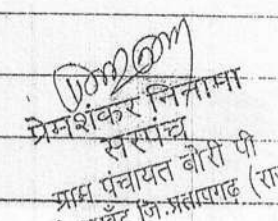 प्रेमशंकर निनामा
सरपंच
ग्राम पंचायत बोरी पी
जि.प्रतापगढ़ (राज